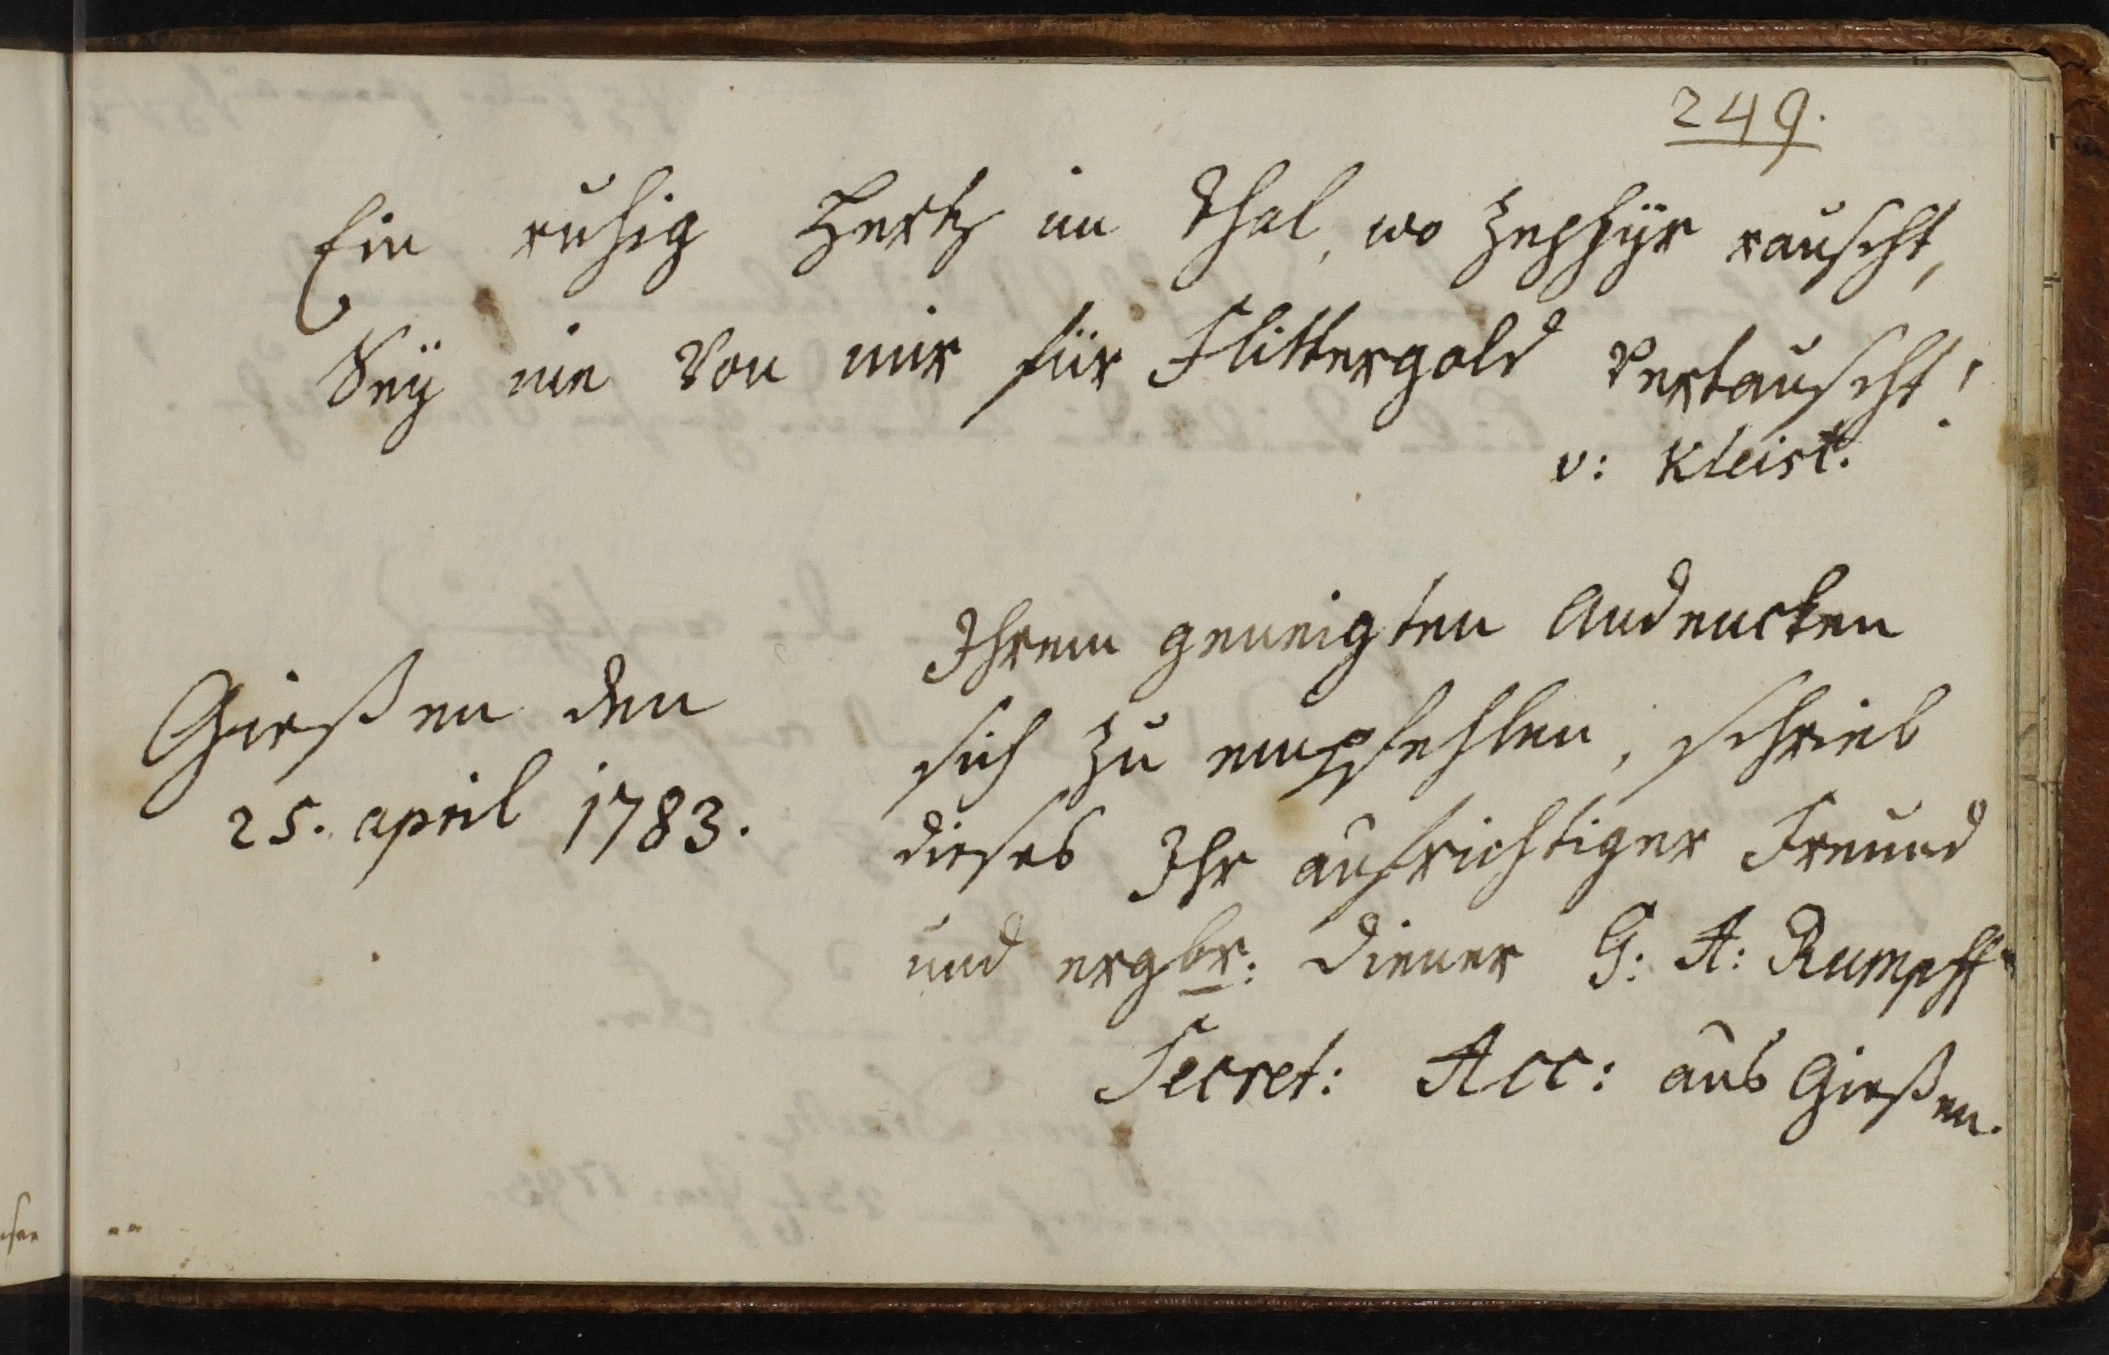 249.
Ein ruhig Hertz im Thal, wo Zephÿr rauscht,
Seÿ nie von mir für Flittergold vertauscht!
v: Kleist.
Ihrem geneigten Andencken
sich zu empfehlen, schrieb
dieses Ihr aufrichtiger Freund
und ergbr: Diener G: A: Rumpff
Secret: Acc: aus Gießen.
Gießen den
25. april 1783.